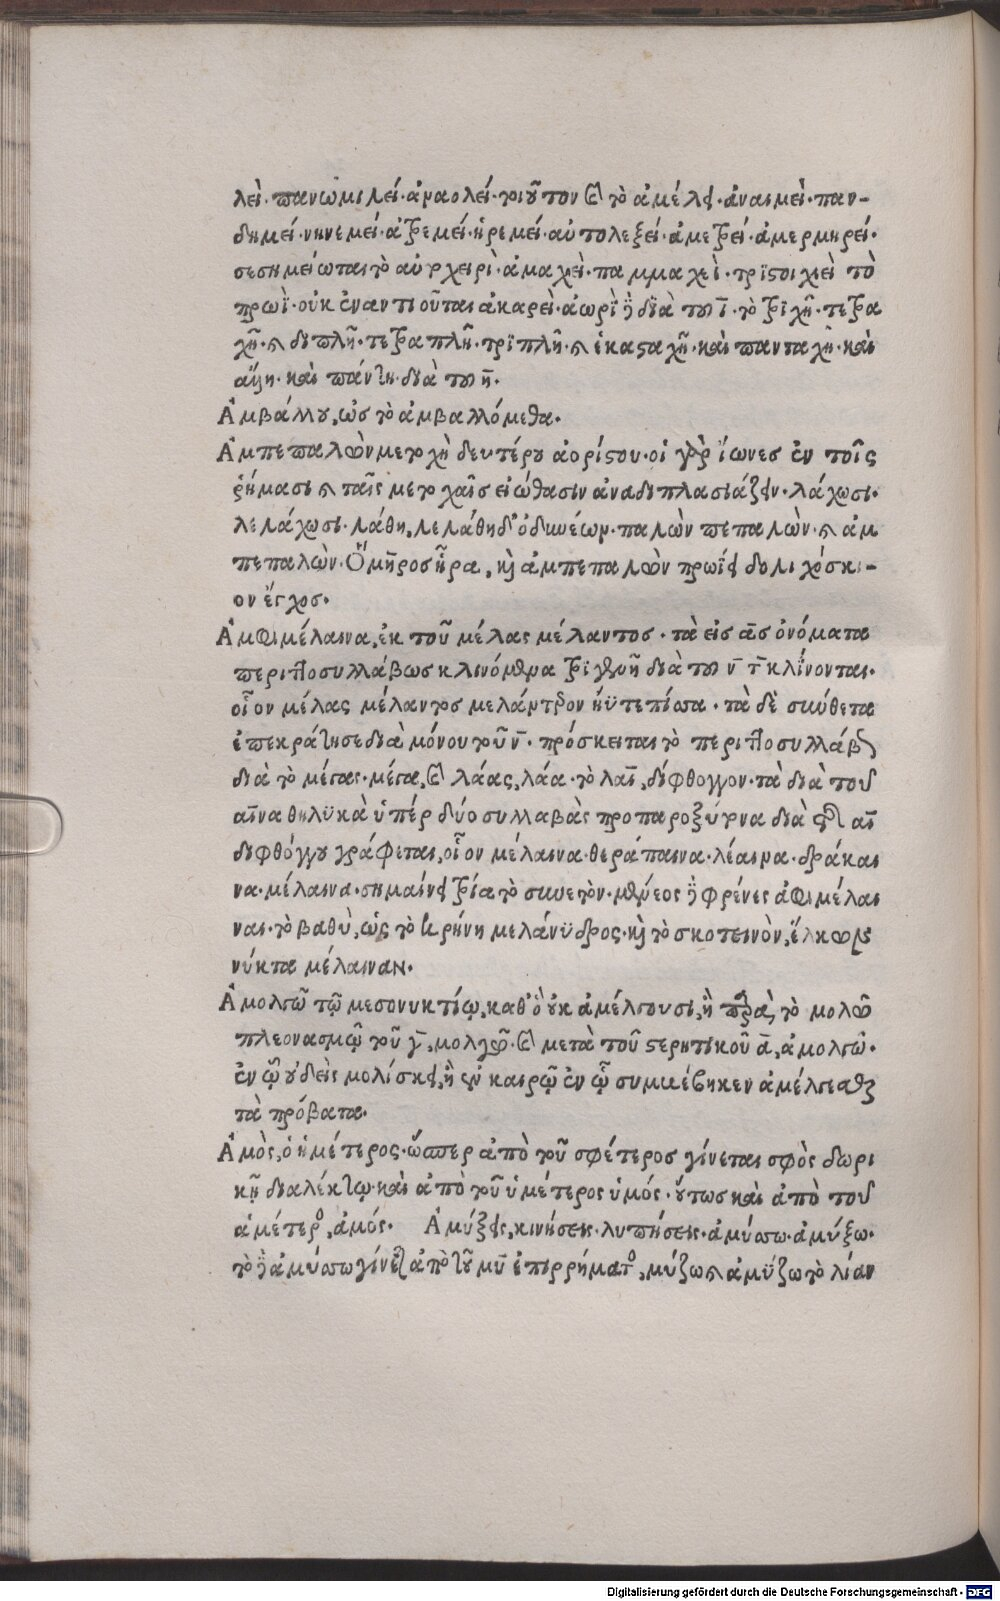 λεὶ· πανωμιλεί· ἀναολεί· τοιοῦτον καὶ τὸ ἀμέλει· ἀναιμεὶ· παν-
δημεί· νηνεμεί· ἀτρεμεί· ἠρεμεί· αὐτολεξεί· ἀμετρεί· ἀμερμηρεί·
σεσημείωται τὸ αὐτοχειρὶ· ἀμαχεὶ· παμμαχεὶ· τρϊστοιχεὶ τὸ
πρωῒ· οὐκ ἐναντιοῦται ἀκαρεὶ· ἀωρὶ δὲ διὰ του ῑ· τὸ τριχῆ· τετρα
χῆ· καὶ διπλῆ· τετραπλῆ· τριπλῆ· καὶ ἑκασταχῆ· καὶ πανταχῆ· καὶ
ἄλλη· καὶ πάντη· διὰ του η̄·
Ἀμβάλλου, ὡς τὸ ἀμβαλλόμεθα·
Ἀμπεπαλὼν μετοχὴ δευτέρου ἀορίστου· οἱ γὰρ ἴωνες ἐν τοῖς
ῥήμασι καὶ ταῖς μετοχαῖς εἰώθασιν ἀναδιπλασιάζειν· λάχωσι·
λελάχωσι· λάθη, λελάθη δ' ὀδυνέων· παλὼν πεπαλὼν· καὶ ἀμ
πεπαλὼν· Ὅμηρος ἦρα, καὶ ἀμπεπαλὼν προΐει δολιχόσκι-
ον ἔγχος·
Ἀμφιμέλαινα, ἐκ τοῦ μέλας μέλαντος· τὰ εἰς ᾱς ὀνόματα
περιττοσυλλάβως κλινόμενα τριγενῆ διὰ του ν̄ τ̄ κλίνονται·
οἷον μέλας μέλαντος μελάντερον ἠΰτε πίσσα· τὰ δὲ σύνθετα
ἐπεκράτησε διὰ μόνου τοῦ ν̄· πρόσκειται τὸ περιττοσυλλάβως
διὰ τὸ μέγας· μέγα, καὶ λάας, λάα· τὸ λαῑ, δίφθογγον· τὰ διὰ τοῦ
αῑνα θηλϋκὰ ὑπὲρ δύο συλλαβὰς προπαροξύτονα διὰ τῆς αῑ
διφθόγγου γράφεται, οἷον μέλαινα· θεράπαινα· λέαινα· δράκαι
να· μέλαινα· σημαίνει τρία τὸ συνετὸν· μένεος δὲ φρένες ἀμφιμέλαι
ναι· τὸ βαθὺ, ὡς τὸ κρήνη μελάνϋδρος· καὶ τὸ σκοτεινὸν, ἕλκων
νύκτα μέλαιναν·
Ἀμολγῶ τῷ μεσονυκτίῳ, καθ' ὃ οὐκ ἀμέλγουσι, ἢ παρὰ τὸ μολῶ
πλεονασμῷ τοῦ γ̄, μολγῶ· καὶ μετὰ τοῦ στερητικοῦ ᾱ, ἀμολγῶ·
ἐν ᾧ οὐδεὶς μολίσκει, ἢ ἐν καιρῷ ἐν ᾧ συμβέβηκεν ἀμέλγεσθαι
τὰ πρόβατα·
Ἀμὸς, ὁ ἡμέτερος· ὥσπερ ἀπὸ τοῦ σφέτερος γίνεται σφὸς δωρι
κῇ διαλέκτῳ· καὶ ἀπὸ τοῦ ὑμέτερος ὑμός· οὕτως καὶ ἀπὸ τοῦ
ἁμέτερος, ἁμός· Ἀμύξεις, κινήσεις· λυπήσεις· ἀμύσσω· ἀμύξω·
τὸ δὲ ἀμύσσω γίνεται ἀπὸ τοῦ μῡ ἐπιρρήματος, μύζω καὶ ἀμΰζω τὸ λίαν
Digitalisierung gefördert durch die Deutsche Forschungsgemeinschaft - DFG